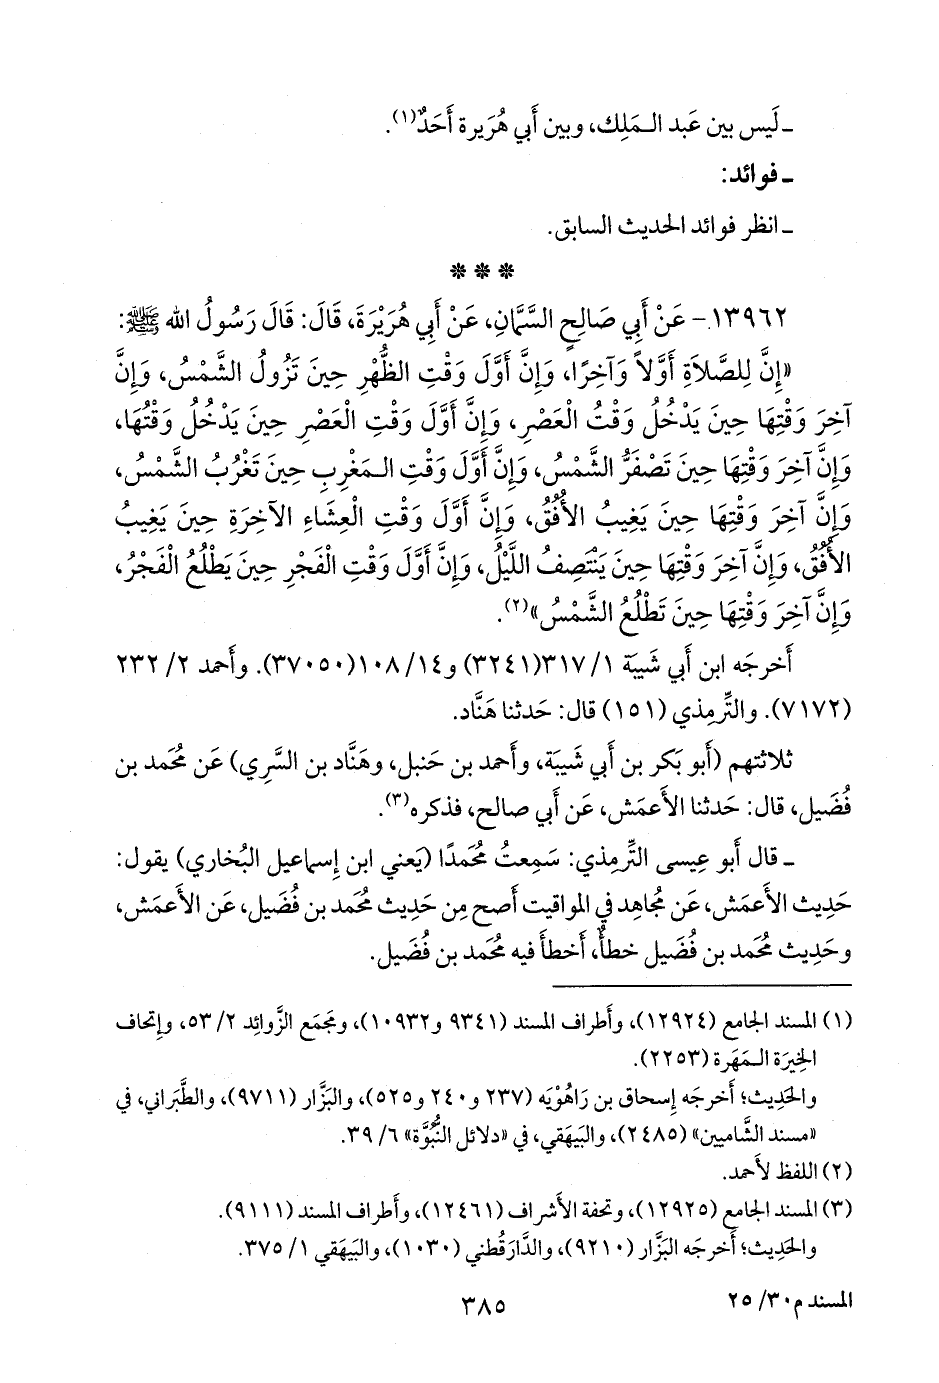 ـ لَيس بين عَبد الـمَلِك، وبين أَبي هُرَيرة أَحَدٌ(١).
ـ فوائد:
ـ انظر فوائد الحديث السابق.
* * *
١٣٩٦٢- عَنْ أَبِي صَالِحٍ السَّمَّانِ، عَنْ أَبِي هُرَيْرَةَ، قَالَ: قَالَ رَسُولُ الله ﷺ:
«إِنَّ لِلصَّلاَةِ أَوَّلاً وَآخِرًا، وَإِنَّ أَوَّلَ وَقْتِ الظُّهْرِ حِينَ تَزُولُ الشَّمْسُ، وَإِنَّ
آخِرَ وَقْتِهَا حِينَ يَدْخُلُ وَقْتُ الْعَصْرِ، وَإِنَّ أَوَّلَ وَقْتِ الْعَصْرِ حِينَ يَدْخُلُ وَقْتُهَا،
وَإِنَّ آخِرَ وَقْتِهَا حِينَ تَصْفَرُّ الشَّمْسُ، وَإِنَّ أَوَّلَ وَقْتِ الـمَغْرِبِ حِينَ تَغْرُبُ الشَّمْسُ،
وَإِنَّ آخِرَ وَقْتِهَا حِينَ يَغِيبُ الأُفُقُ، وَإِنَّ أَوَّلَ وَقْتِ الْعِشَاءِ الآخِرَةِ حِينَ يَغِيبُ
الأُفُقُ، وَإِنَّ آخِرَ وَقْتِهَا حِينَ يَنْتَصِفُ اللَّيْلُ، وَإِنَّ أَوَّلَ وَقْتِ الْفَجْرِ حِينَ يَطْلُعُ الْفَجْرُ،
وَإِنَّ آخِرَ وَقْتِهَا حِينَ تَطْلُعُ الشَّمْسُ»(٢).
أَخرجَه ابن أَبي شَيبَة ١/ ٣١٧(٣٢٤١) و١٤/ ١٠٨(٣٧٠٥٠). وأَحمد ٢/ ٢٣٢
(٧١٧٢). والتِّرمِذي (١٥١) قال: حَدثنا هَنَّاد.
ثلاثتهم (أَبو بَكر بن أَبي شَيبَة، وأَحمد بن حَنبل، وهَنَّاد بن السَّرِي) عَن مُحَمد بن
فُضَيل، قال: حَدثنا الأَعمَش، عَن أَبي صالح، فذكره(٣).
ـ قال أَبو عِيسى التِّرمِذي: سَمِعتُ مُحَمدًا (يَعني ابن إِسماعيل البُخاري) يقول:
حَدِيث الأَعمَش، عَن مُجاهِد في المواقيت أَصح مِن حَدِيث مُحَمد بن فُضَيل، عَن الأَعمَش،
وحَدِيث مُحَمد بن فُضَيل خطأٌ، أَخطأَ فيه مُحَمد بن فُضَيل.
(١) المسند الجامع (١٢٩٢٤)، وأَطراف المسند (٩٣٤١ و١٠٩٣٢)، ومَجمَع الزَّوائِد ٢/ ٥٣، وإِتحاف
الخِيرَة الـمَهَرة (٢٢٥٣).
والحَدِيث؛ أَخرجَه إِسحاق بن رَاهُوْيَه (٢٣٧ و٢٤٠ و٥٢٥)، والبَزَّار (٩٧١١)، والطَّبَراني، في
«مسند الشَّاميين» (٢٤٨٥)، والبَيهَقي، في «دلائل النُّبُوَّة» ٦/ ٣٩.
(٢) اللفظ لأَحمد.
(٣) المسند الجامع (١٢٩٢٥)، وتحفة الأَشراف (١٢٤٦١)، وأَطراف المسند (٩١١١).
والحَدِيث؛ أَخرجَه البَزَّار (٩٢١٠)، والدَّارَقُطني (١٠٣٠)، والبَيهَقي ١/ ٣٧٥.
المسند م٣٠/ ٢٥
٣٨٥